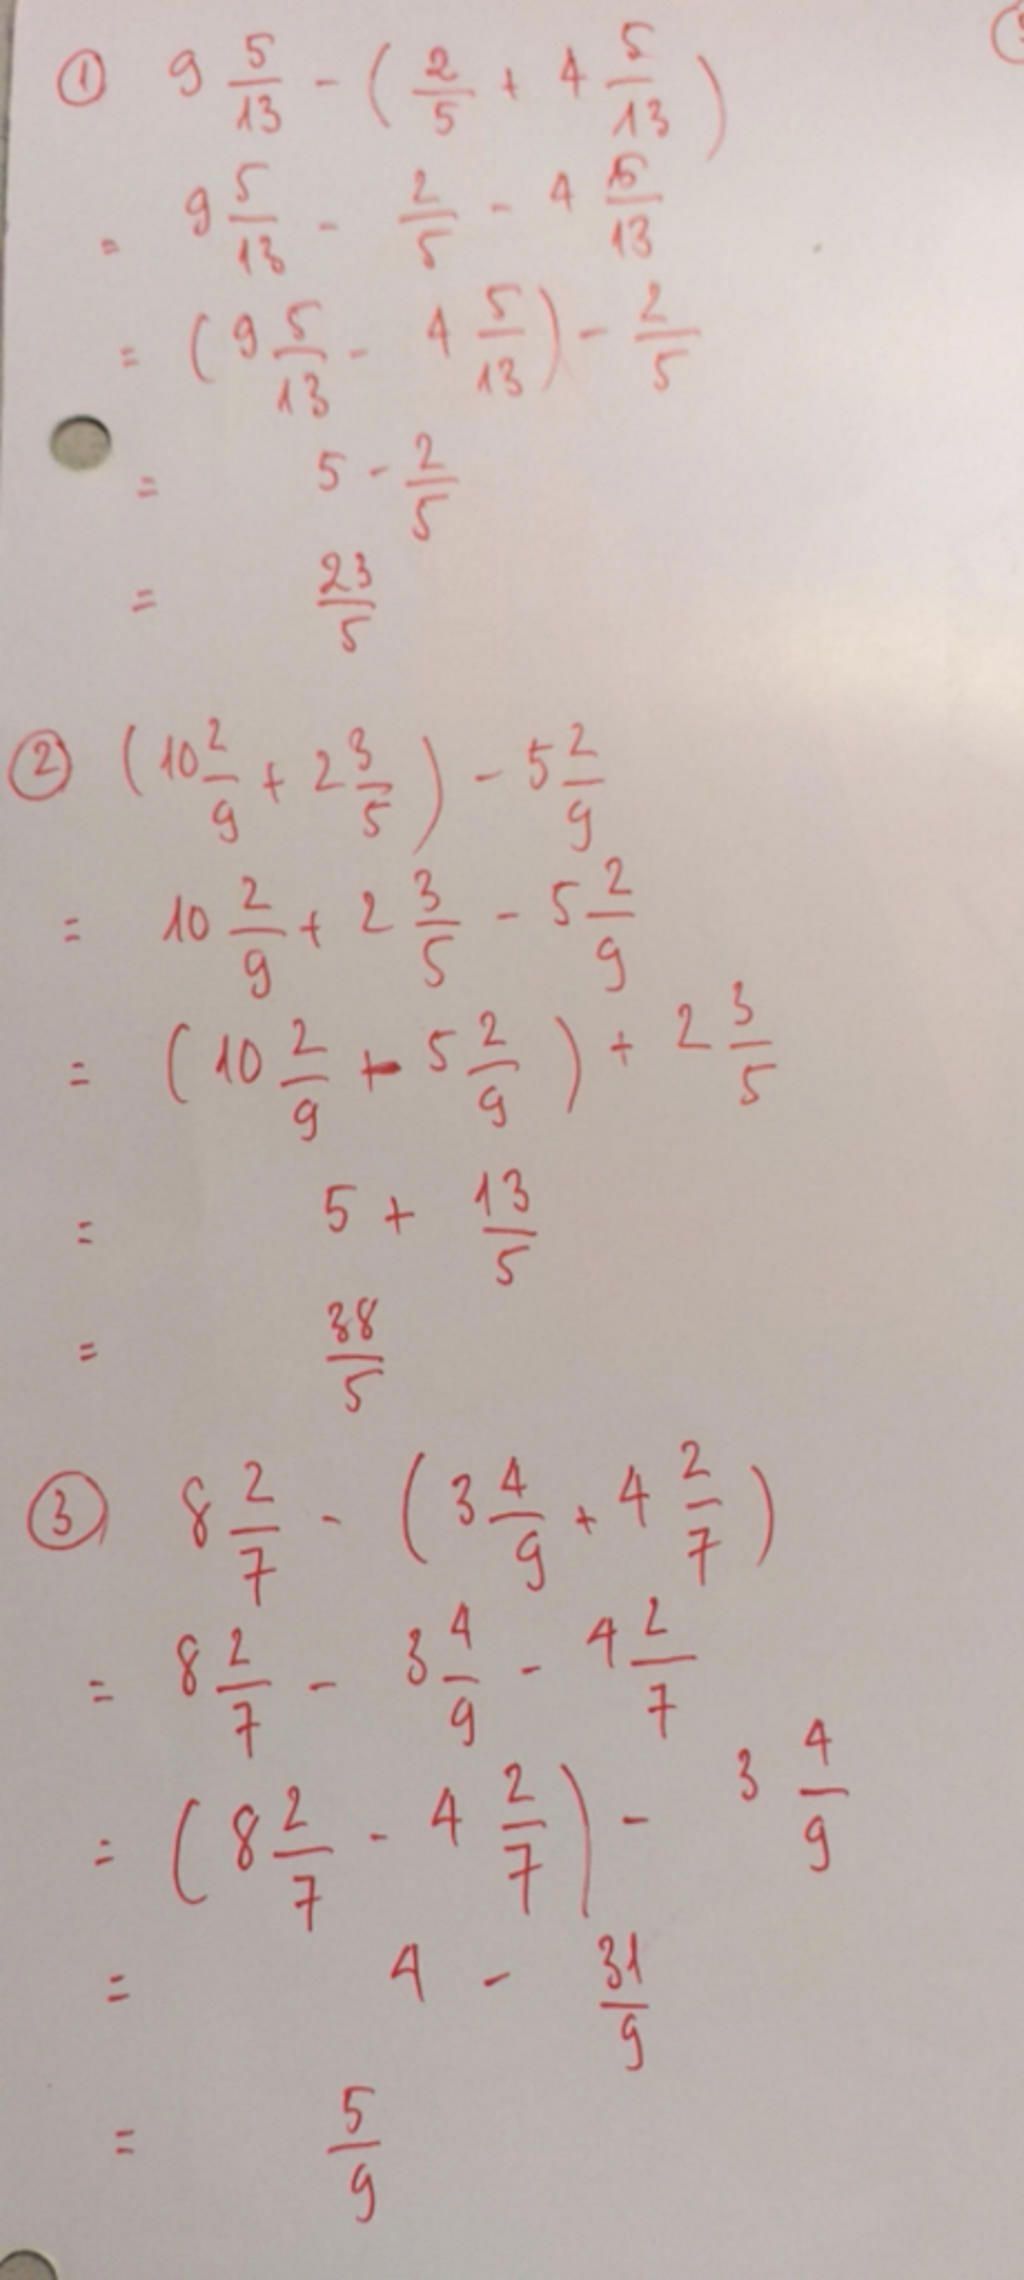 ① 9 5/13 - ( 2/5 + 4 5/13 )
= 9 5/13 - 2/5 - 4 5/13
= ( 9 5/13 - 4 5/13 ) - 2/5
= 5 - 2/5
= 23/5
② ( 10 2/9 + 2 3/5 ) - 5 2/9
= 10 2/9 + 2 3/5 - 5 2/9
= ( 10 2/9 - 5 2/9 ) + 2 3/5
= 5 + 13/5
= 38/5
③ 8 2/7 - ( 3 4/9 + 4 2/7 )
= 8 2/7 - 3 4/9 - 4 2/7
= ( 8 2/7 - 4 2/7 ) - 3 4/9
= 4 - 31/9
= 5/9